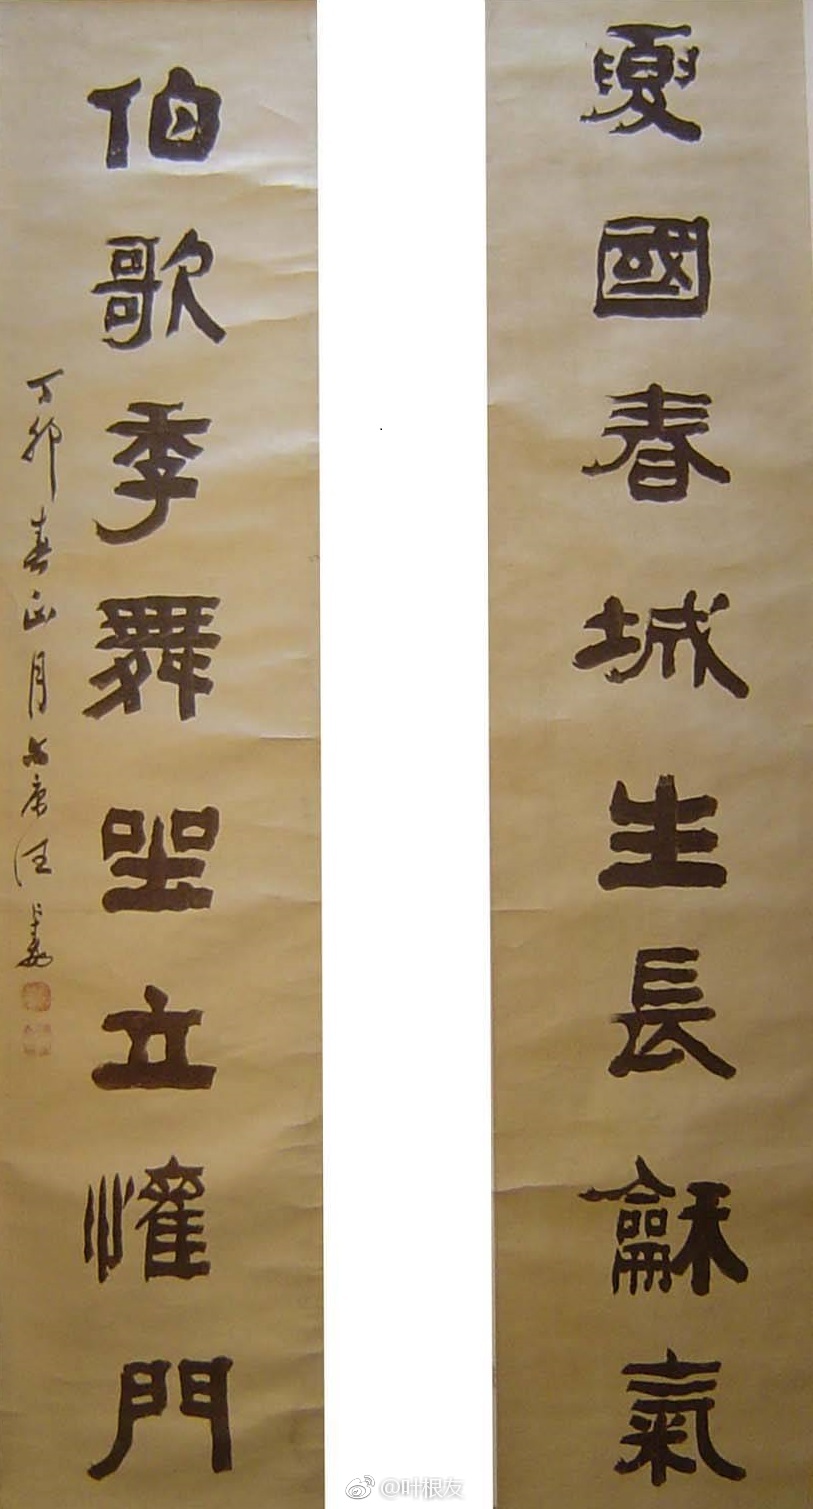 夏國春城生長龢氣
伯歌季舞坐立懽門
丁卯春正月
@叶根友